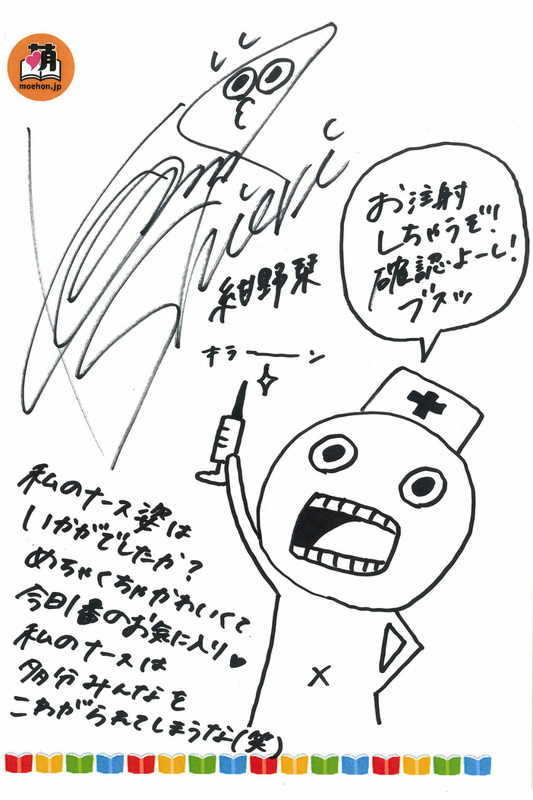 萌
moehon.jp
Shiori
紺野栞
お注射
しちゃうぞ!
確認よーし!
ブスッ
キラーーン
私のナース姿は
いかがでしたか?
めちゃくちゃかわいくて
今日1番のお気に入り♥
私のナースは
多分みんなを
こわがられてしまうな(笑)